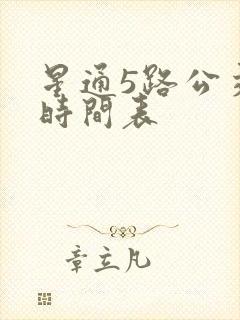 星通5路公交
時間表
章立凡